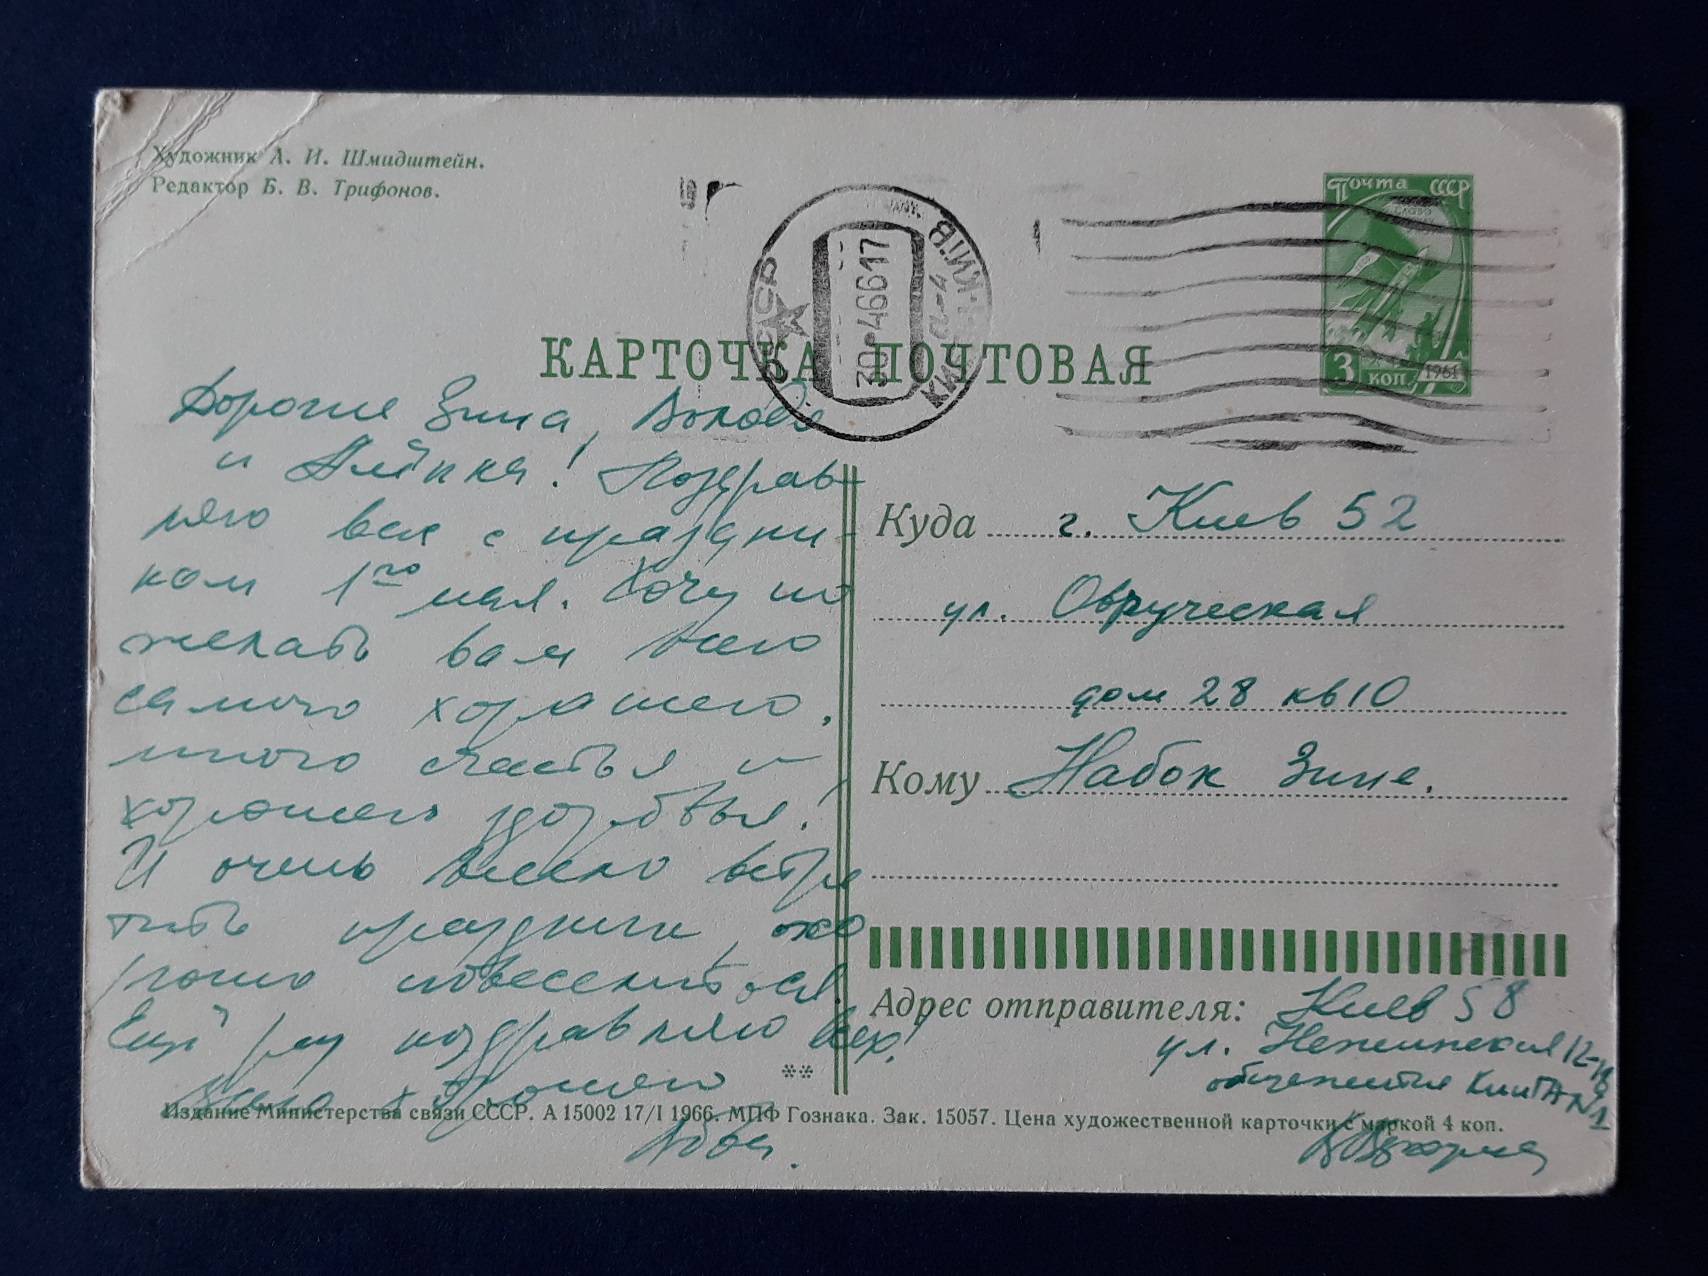 Художник А. И. Шмидштейн.
Редактор Б. В. Трифонов.
Почта СССР
3 коп. 1961
СССР
30 -4 66 17
КИЕВ-4
КИЇВ
КАРТОЧКА ПОЧТОВАЯ
Дорогие Зина, Володя
и Алёнка! Поздрав-
ляю вас с праздни-
ком 1го мая. Хочу по
желать вам всего
самого хорошего,
много счастья и
хорошего здоровья!
И очень весело встре
тить праздники, хо
рошо повеселиться.
Ещё раз поздравляю всех!
Всего хорошего
Куда г. Киев 52
ул. Овручская
дом 28 кв 10
Кому Набок Зине.
Адрес отправителя: Киев 58
ул. Нежинская
общежитие КИИГА №1
**
Издание Министерства связи СССР. А 15002 17/I 1966. МПФ Гознака. Зак. 15057. Цена художественной карточки с маркой 4 коп.